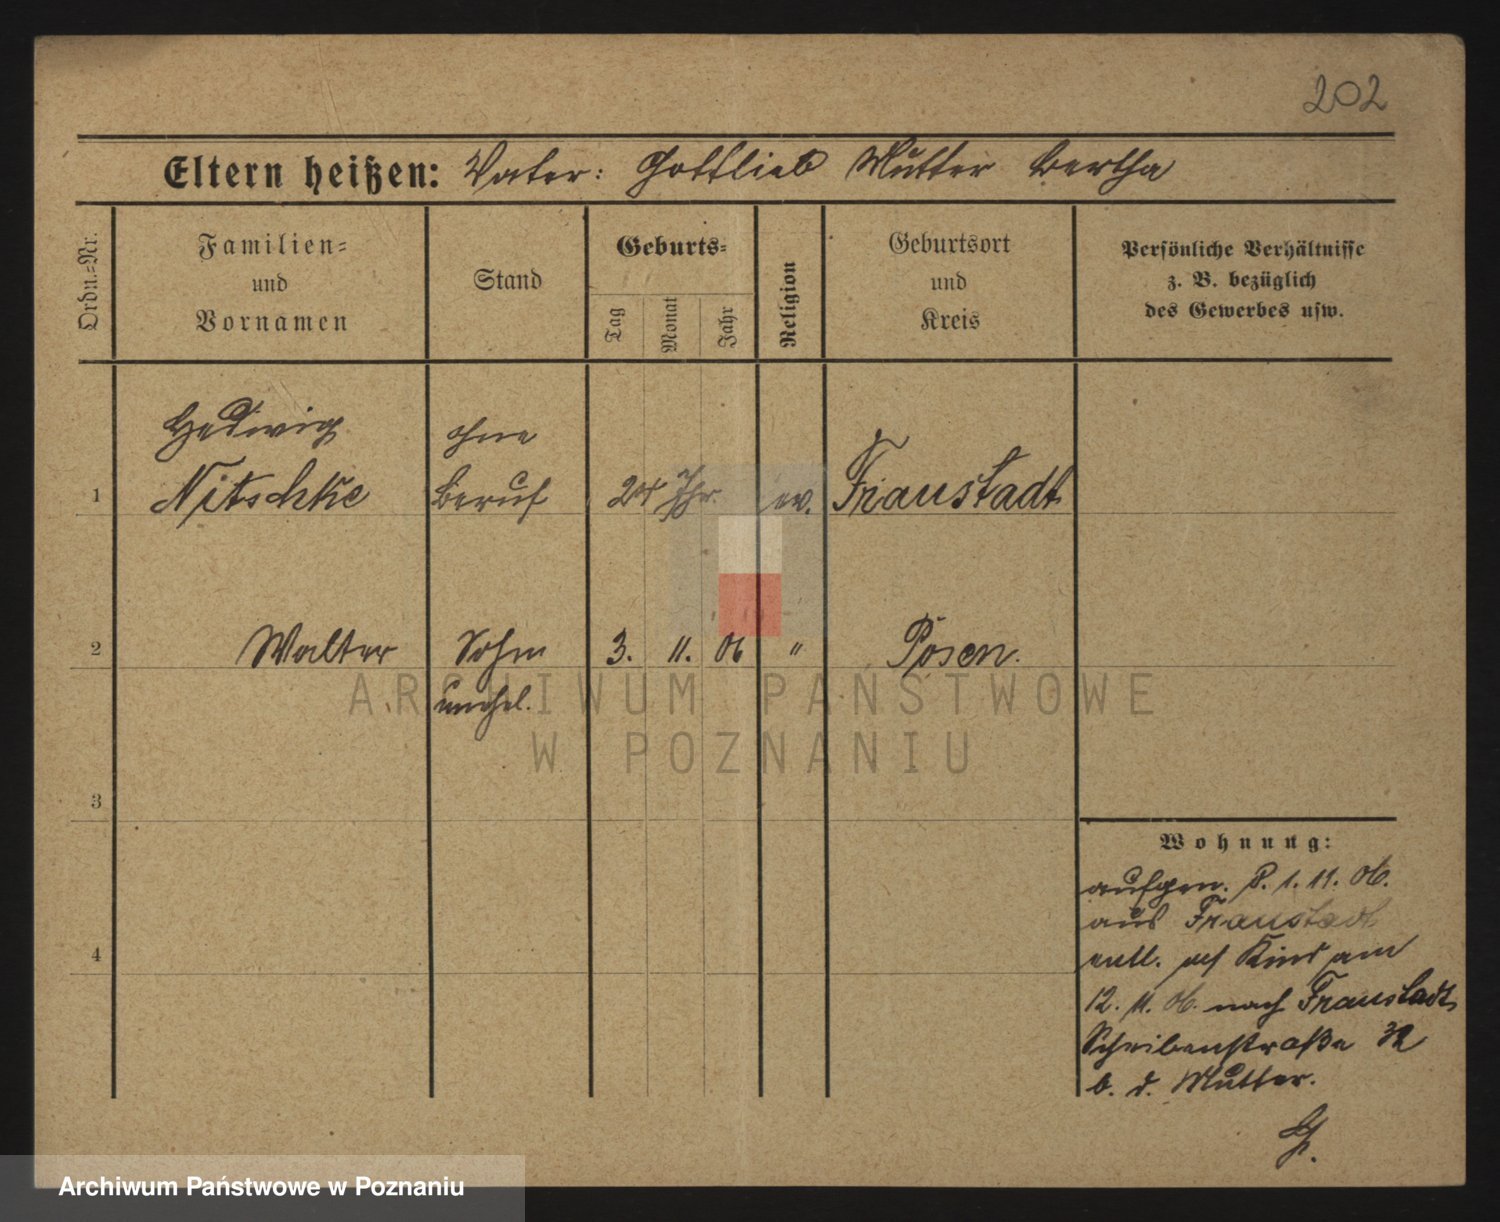 202
Eltern heißen: Vater: Gottlieb Mutter Bertha
Ordn.=Nr.
Familien=
und
Vornamen
Stand
Geburts=
Tag
Monat
Jahr
Religion
Geburtsort
und
Kreis
Persönliche Verhältnisse
z. B. bezüglich
des Gewerbes usw.
Hedwig ohne
1 Nitschke Beruf 24 Jhr. ev. Fraustadt
2 Walter Sohn 3. 11. 06 " Posen.
unehel.
3
4
Wohnung:
aufgen. P. 1. 11. 06.
aus Fraustadt
entl. Kind am
12. 11. 06. nach Fraustadt
32
b. d. Mutter.
ARCHIWUM PAŃSTWOWE
W POZNANIU
Archiwum Państwowe w Poznaniu